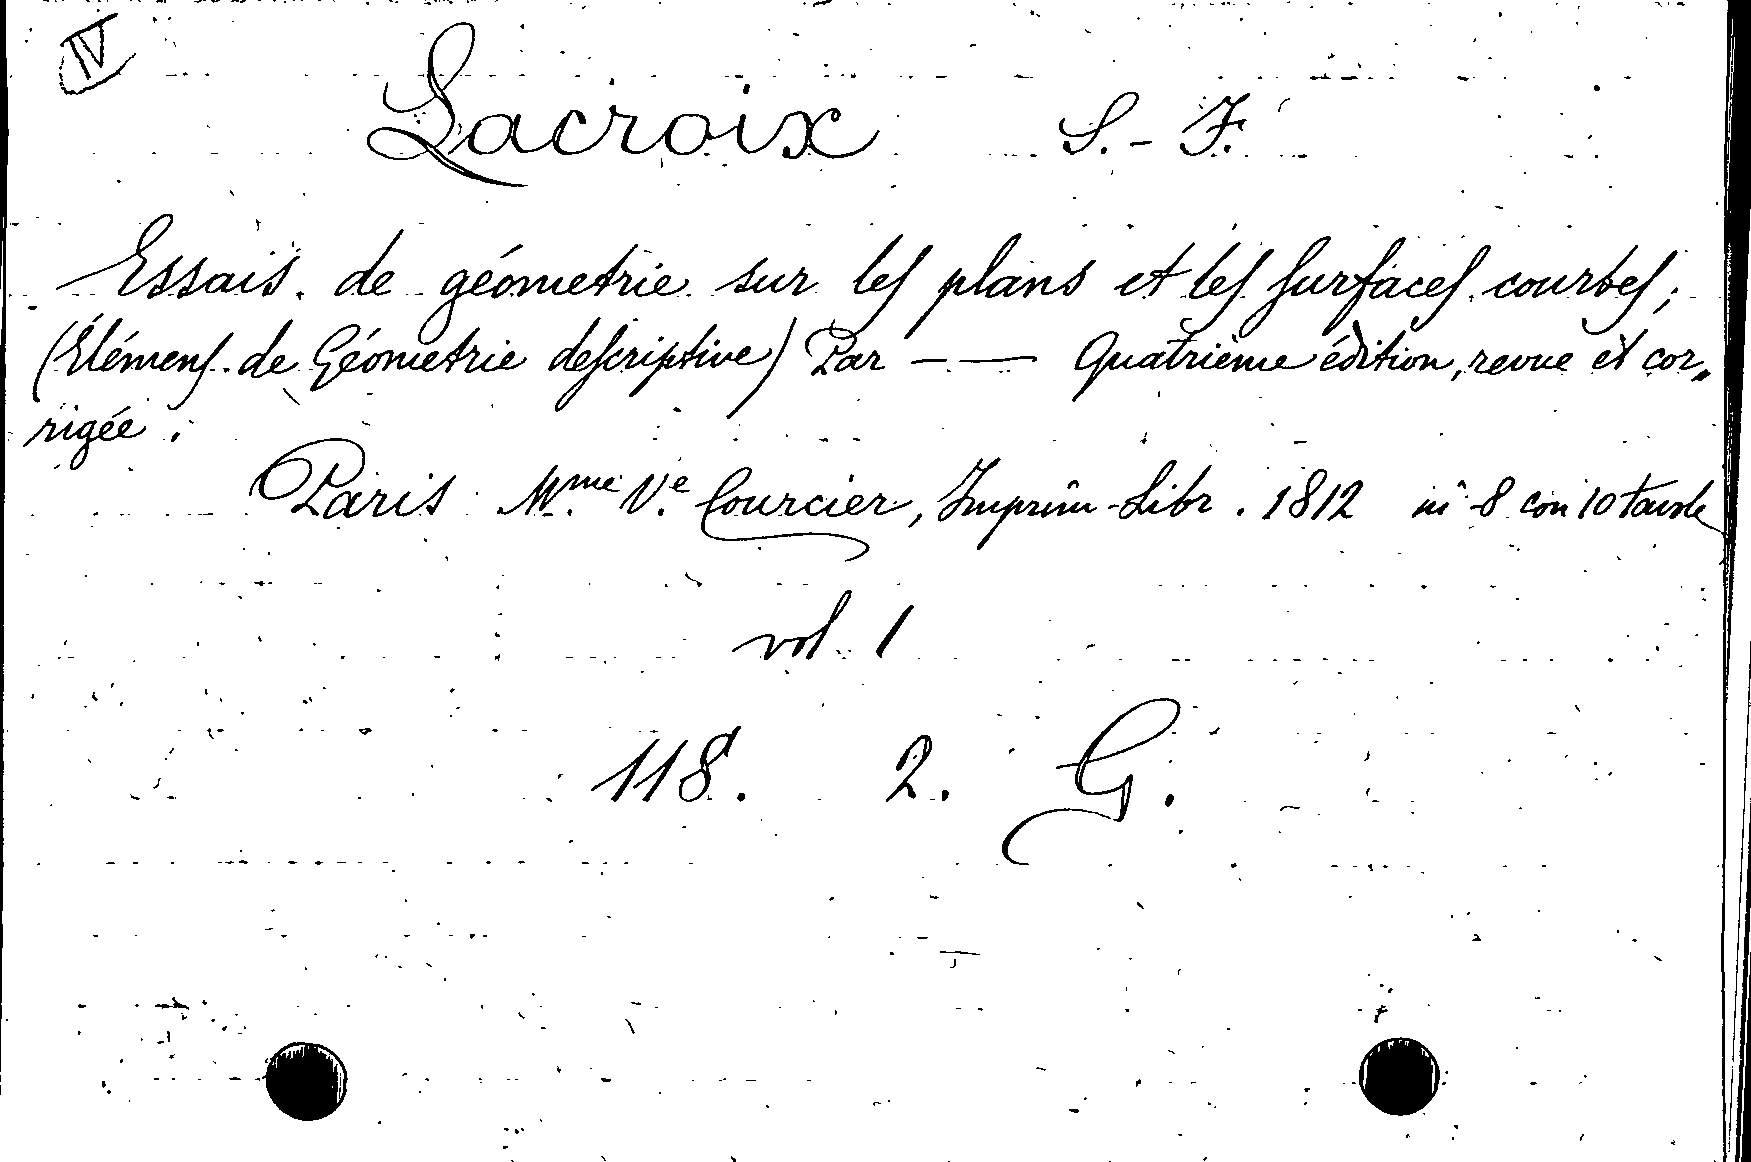 IV
Lacroix S.-F.
Essais de géometrie sur les plans et les surfaces courbes;
(Élémens de Géometrie descriptive) Par — — Quatrième édition, revue et cor„
rigée.
Paris M.me V.e Courcier, Imprim-Libr. 1812 in-8 con 10 tavole
vol. 1
118. 2. G.